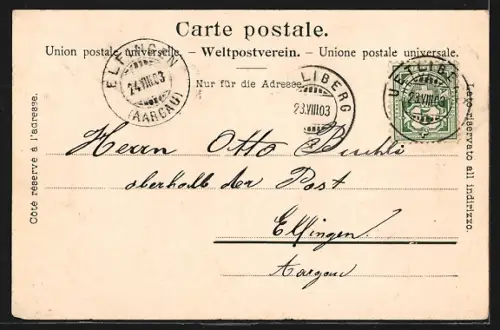 Carte postale.
Union postale universelle. - Weltpostverein. - Unione postale universale.
Nur für die Adresse.
Côté réservé à l'adresse.
Lato riservato all indirizzo.
ELFINGEN
24.VIII.03
(AARGAU)
LIBERG
23.VIII.03
UETLIBE
23.VIII.03
Herrn Otto Büchli
oberhalb der Post
Elfingen.
Aargau